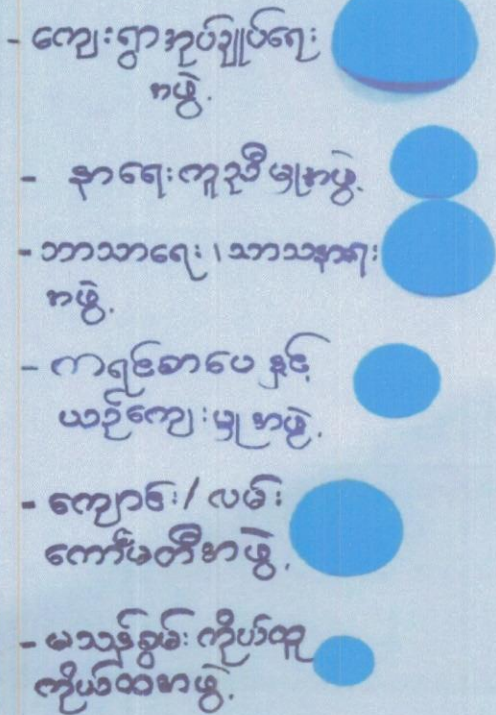 - ကျေးရွာအုပ်ချုပ်ရေး
အဖွဲ့.
- နာရေးကူညီမှုအဖွဲ့.
- ဘာသာရေး ၊သာသနာရေး
အဖွဲ့.
- ကရင်စာပေ နှင့်
ယဉ်ကျေးမှု အဖွဲ့.
- ကျောင်း / လမ်း
ကော်မတီအဖွဲ့.
- မသန်စွမ်း ကိုယ်ထူ
ကိုယ်ထအဖွဲ့.